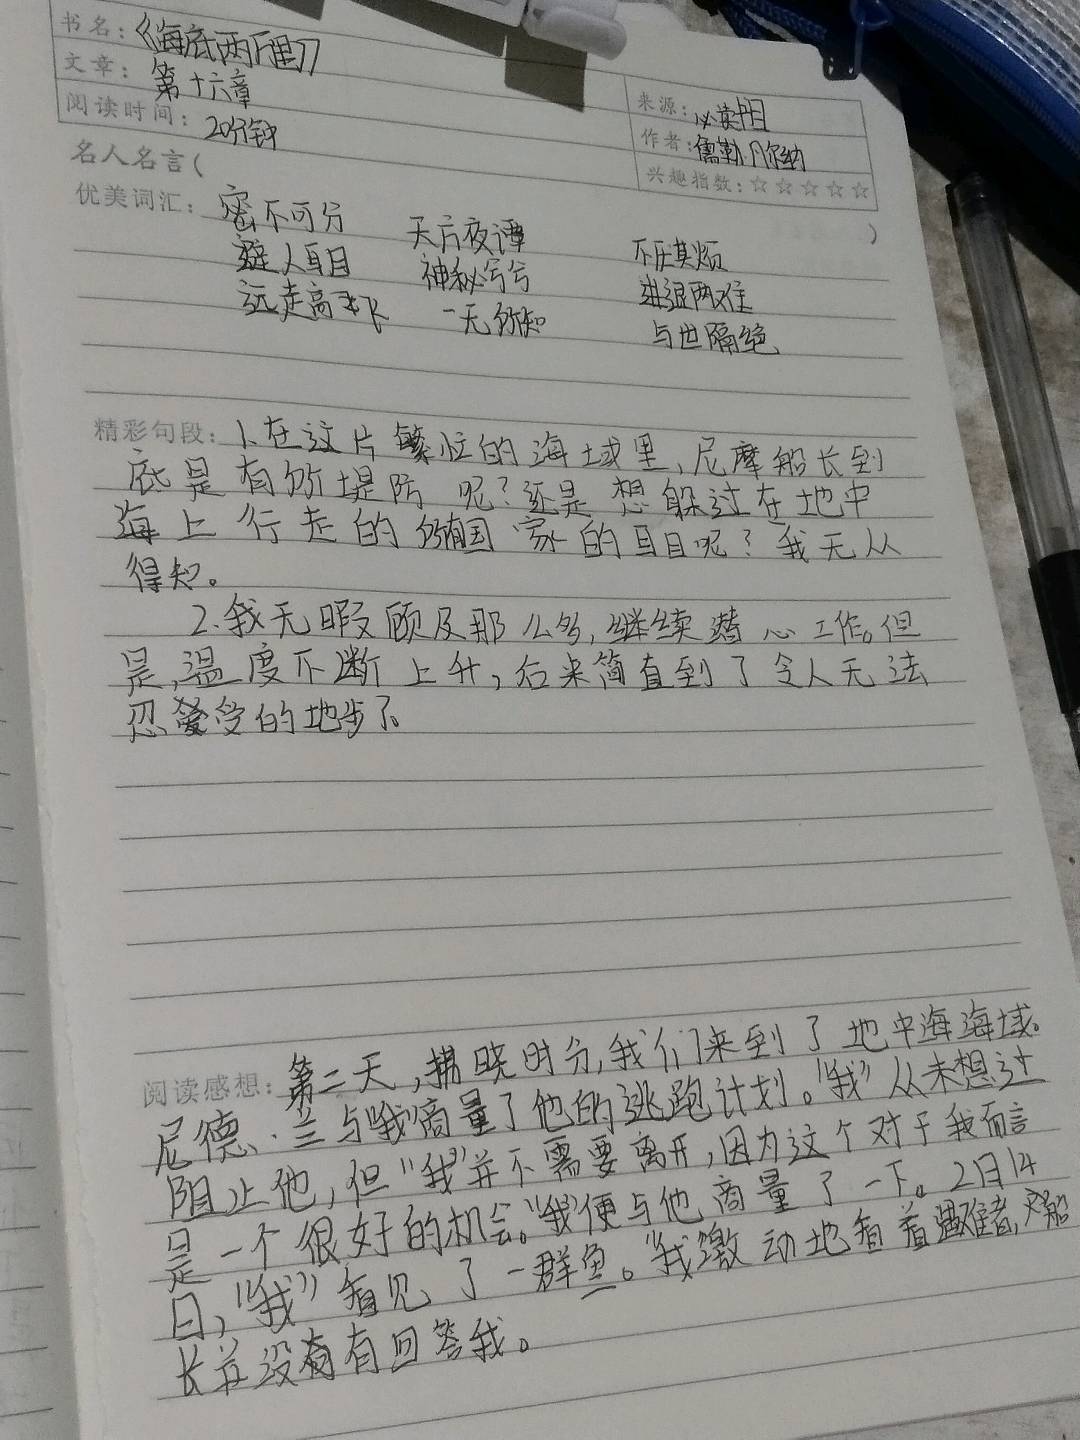 书名：《海底两万里》
文章：第十六章
来源：必读书目
阅读时间：20分钟
作者：儒勒·凡尔纳
兴趣指数：☆☆☆☆☆
名人名言（ ）
优美词汇：密不可分 天方夜谭 不厌其烦
避人耳目 神秘兮兮 进退两难
远走高飞 一无所知 与世隔绝
精彩句段：1、在这片繁忙的海域里，尼摩船长到
底是有所堤防呢？还是想躲过在地中
海上行走的所有国家的耳目呢？我无从
得知。
2.我无暇顾及那么多，继续潜心工作。但
是，温度不断上升，后来简直到了令人无法
忍受的地步了
阅读感想：第二天，拂晓时分，我们来到了地中海海域。
尼德·兰与"我"商量了他的逃跑计划。"我"从未想过
阻止他，但"我"并不需要离开，因为这个对于我而言
是一个很好的机会。"我"便与他商量了一下。2日14
日，"我"看见了一群鱼。"我激动地看着遇难者，又船
长并没有回答我。